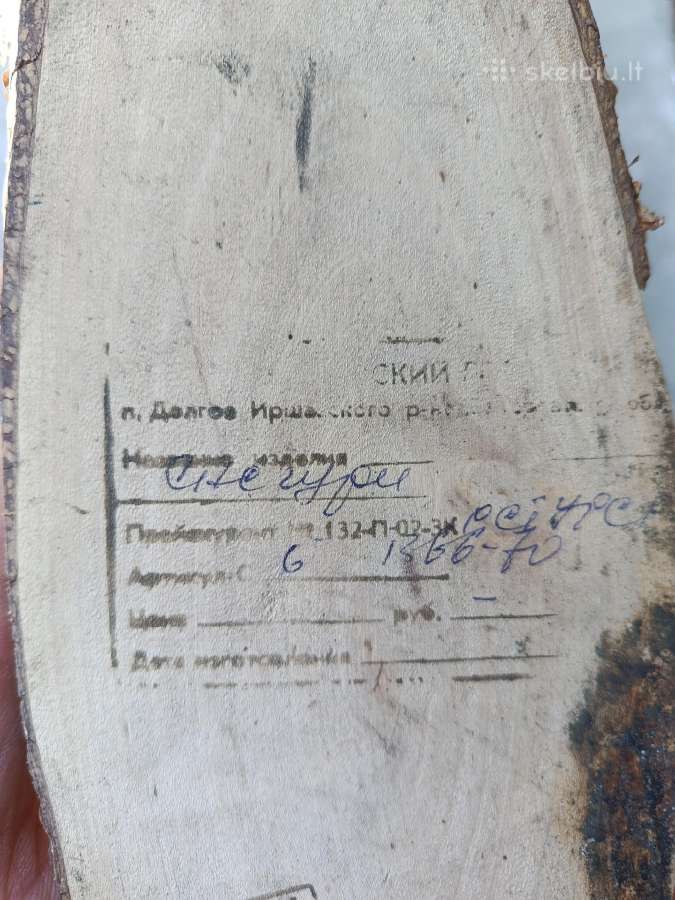 skelbiu.lt
СКИЙ
п. Долгое Иршавского обл
Название изделия
Снегури
Прейскурант № 132-П-02-3К ОСТ УРСР
Артикул 6 1366-70
Цена руб. –
Дата изготовления